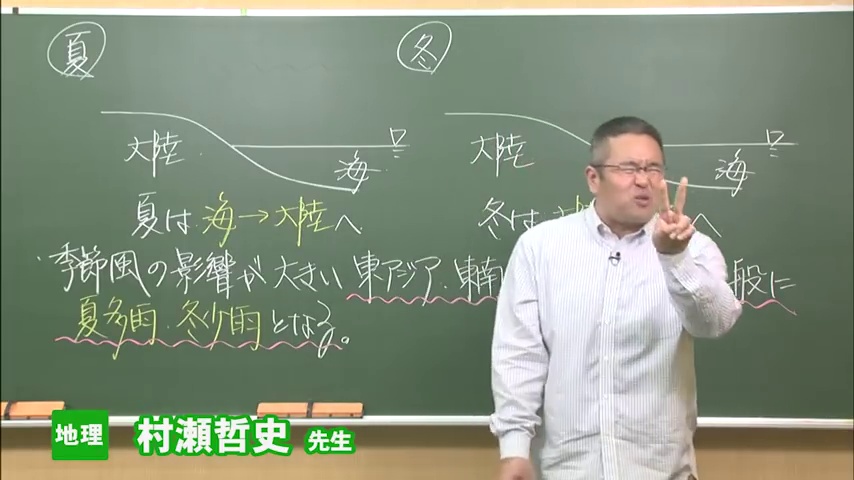 夏
冬
大陸
海
大陸
海
夏は 海→大陸へ
冬は 大 へ
季節風の影響が大きい 東アジア・東南 般に
夏多雨・冬少雨となる。
地理 村瀬哲史 先生